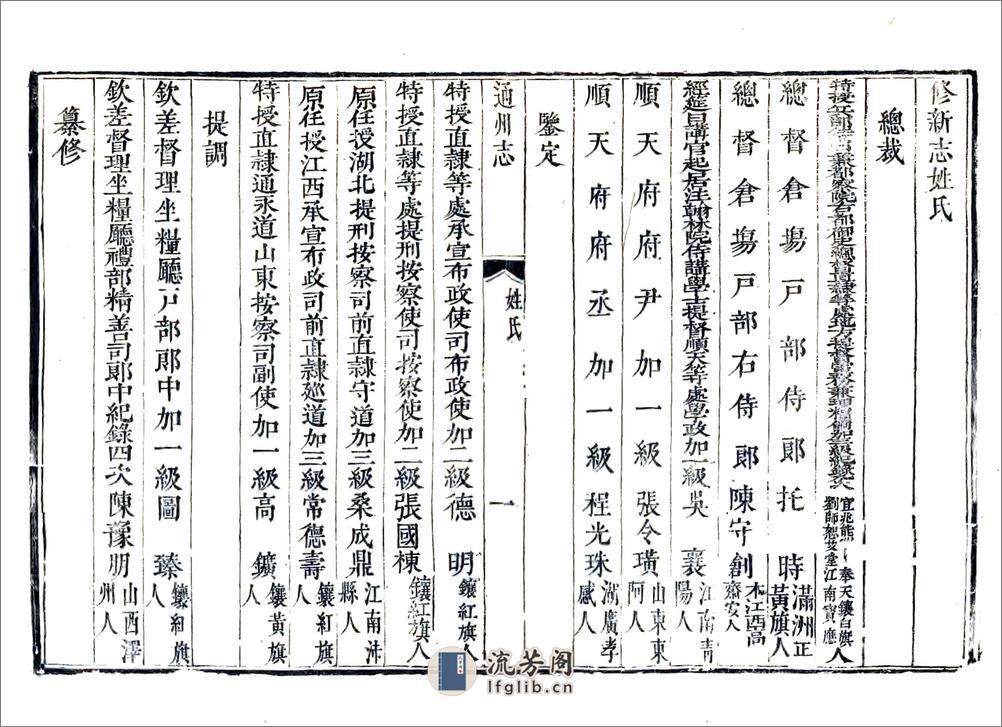 修新志姓氏
總裁
特授兵部侍郎兼都察院右都御史總督直隸等處地方提督軍務兼理糧餉加三級紀錄 宜兆熊 奉天鑲白旗人
劉師恕 艾堂江南寶應人
總督倉場戶部侍郎托 時 滿洲正黃旗人
總督倉場戶部右侍郎陳守創 江西高安人
經筵日講官起居注翰林院侍講學士提督順天等處學政加一級吳 襄 江南青陽人
順天府府尹加一級張令璜 山東東阿人
順天府府丞加一級程光珠 湖廣孝感人
鑒定
通州志 姓氏 一
特授直隸等處承宣布政使司布政使加二級德 明 鑲紅旗人
特授直隸等處提刑按察使司按察使加二級張國棟 鑲紅旗人
原任授湖北提刑按察司前直隸守道加三級桑成鼎 江南沛縣人
原任授江西承宣布政司前直隸巡道加三級常德壽 鑲紅旗人
特授直隸通永道山東按察司副使加一級高 鑛 鑲黃旗人
提調
欽差督理坐糧廳戶部郎中加一級圖 臻 鑲紅旗人
欽差督理坐糧廳禮部精善司郎中紀錄四次陳豫朋 山西澤州人
纂修
流芳阁
lfglib.cn